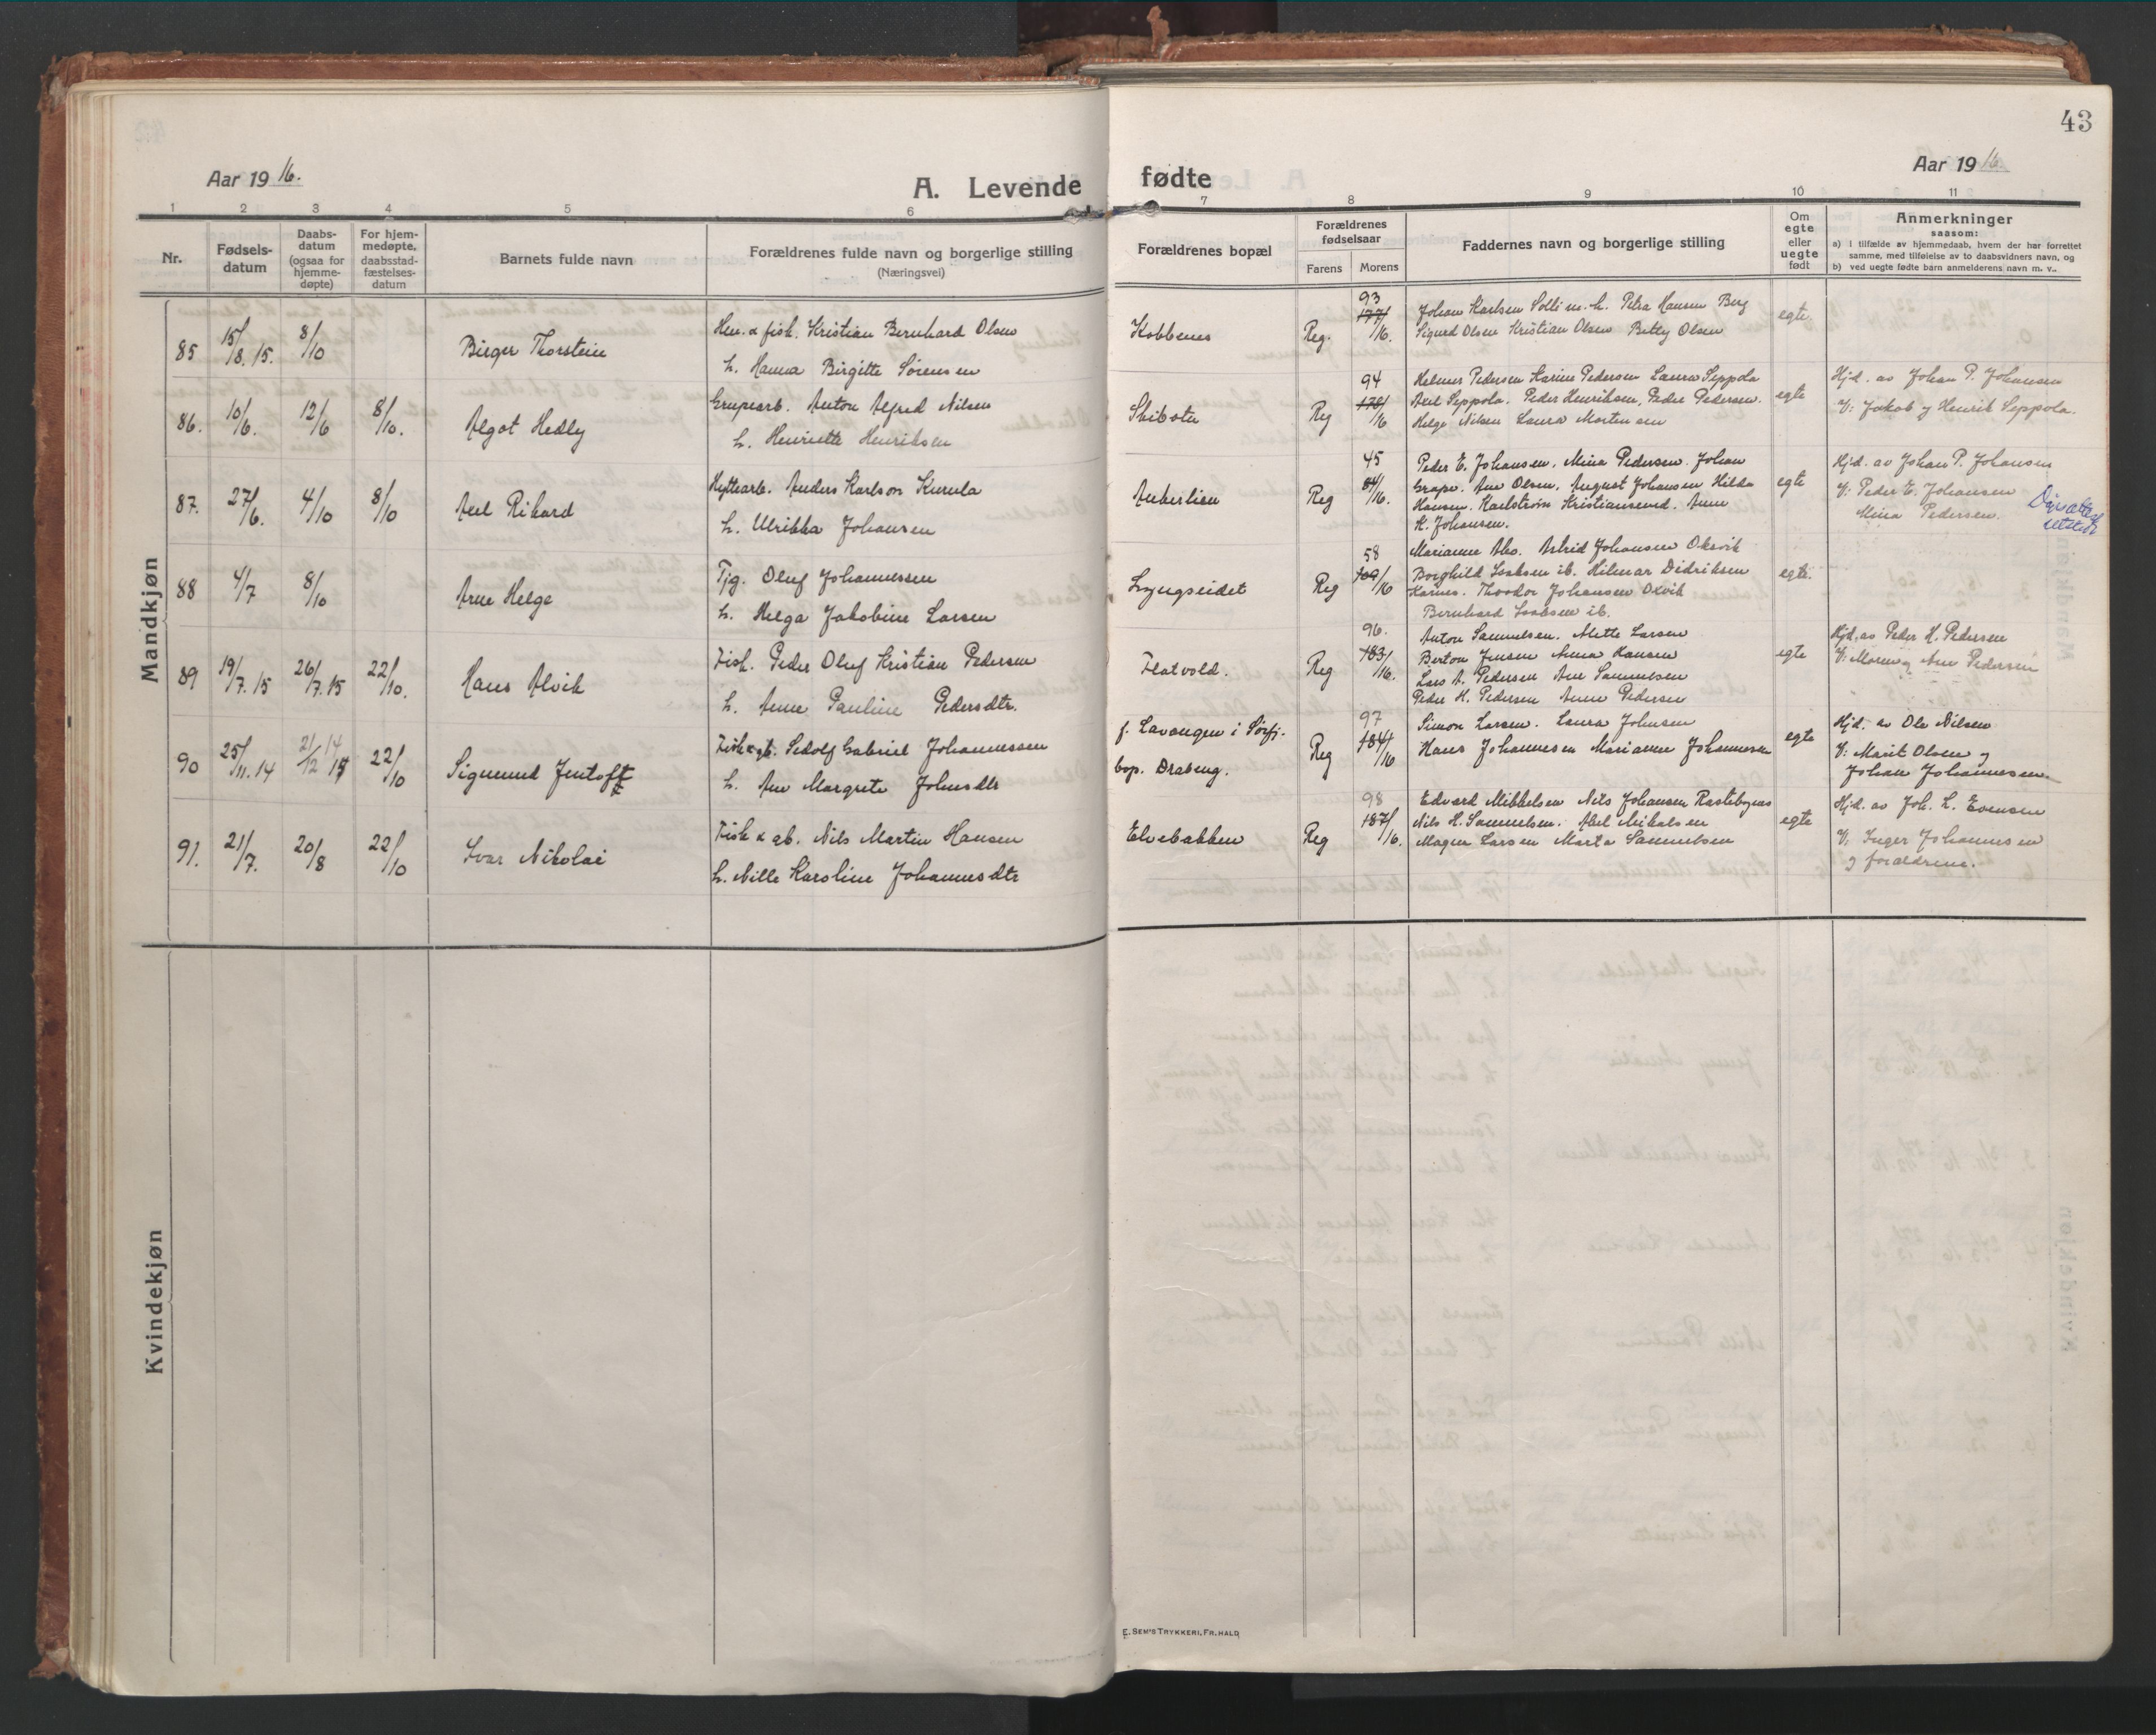 43
Aar 1916.
A. Levende fødte
Aar 1916
1 2 3 4 5 6 7 8 9 10 11
Nr.
Fødsels-
datum
Daabs-
datum
(ogsaa for
hjemme-
døpte)
For hjem-
medøpte,
daabsstad-
fæstelses-
datum
Barnets fulde navn
Forældrenes fulde navn og borgerlige stilling
(Næringsvei)
Forældrenes bopæl
Forældrenes
fødselsaar
Farens Morens
Faddernes navn og borgerlige stilling
Om
egte
eller
uegte
født
Anmerkninger
saasom:
a) i tilfælde av hjemmedaab, hvem der har forrettet
samme, med tilføielse av to daabsvidners navn, og
b) ved uegte fødte barn anmelderens navn m. v..
Mandkjøn
85 15/8. 15. 8/10 Birger Thorstein
& fisk. Kristian Bernhard Olsen
h. Hanna Birgitte Sørensen
Kobbenes Reg. 93
177/16.
Johan Karlsen Solli m. h. Petra Hansen Berg
Sigurd Olsen Kristian Olsen Betty Olsen
egte.
86. 10/6. 12/6 8/10. Algot Hedly
Grupearb. Anton Alfred Nilsen
h. Henriette Henriksen
Skibotn Reg 94
178/16
Helmer Pedersen Karine Pedersen Laura Seppola
Axel Seppola. Peder Henriksen, Peder Pedersen.
Helge Nilsen Laura Mortensen
egte
Hjd. av Johan P. Johansen
V: Jakob og Henrik Seppola.
87. 27/6. 4/10 8/10 Axel Rikard
Hyttearb. Anders Karlson Kurula
h. Ulrikka Johansen
Ankerlien Reg 45
84/16.
Peder E. Johansen, Mina Pedersen. Johan
Grape. Ane Olsen, August Johansen Hilda
Hansen. Karlstrøm Kristiansund. Anne
K. Johansen.
egte
Hjd. av Johan P. Johansen
V: Peder E. Johansen
Mina Pedersen.
utstedt
88 4/7 8/10 Arne Helge
Tjg. Oluf Johannessen
h. Helga Jakobine Larsen
Lyngseidet Reg 58
109/16
Marianne Astrid Johansen Oksvik
Borghild Isaksen ib. Hilmar Didriksen
Karnes. Theodor Johansen Oksvik
Bernhard Isaksen ib.
egte.
89 19/7. 15 26/7. 15 22/10. Hans Alvik
Fisk. Peder Oluf Kristian Pedersen
h. Anne Pauline Pedersdtr.
Flatvold. Reg 96.
183/16.
Anton Samuelsen. Mette Larsen
Berton Jensen Anna Hansen
Lars A. Pedersen Ane Samuelsen
Peder H. Pedersen Anne Pedersen
egte
Hjd. av Peder H. Pedersen
V: Moren og Ane Pedersen
90 25/11. 14 21/12 14 22/10 Sigmund Jentoft
Fisk & gb. Sedolf Gabriel Johannessen
h. Ane Margrete Johnsdtr
f. Lavangen i Sørfj.
bop. Drabeng. Reg 97
184/16
Simon Larsen. Laura Johnsen
Hans Johannesen Marianne Johannesen
egte
Hjd. av Ole Nilsen
V: Marit Olsen og
Johan Johannesen.
91. 21/7. 20/8 22/10 Ivar Nikolai
Fisk & gb. Nils Martin Hansen
h. Nille Karoline Johannesdtr
Elvebakken Reg 98
187/16.
Edvard Mikkelsen Nils Johansen Rastebynes
Nils H. Samuelsen. Abel Mikalsen
Magna Larsen Marta Samuelsen
egte
Hjd. av Joh. L. Evensen
V: Inger Johannesen
og forældrene.
Kvindekjøn
E. SEM'S TRYKKERI, FR.HALD